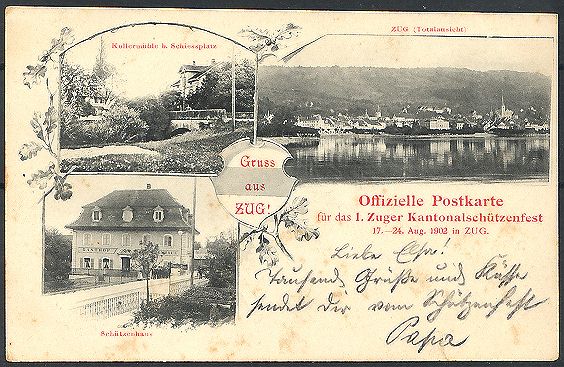 Kollermühle b. Schiessplatz
ZUG (Totalansicht)
Gruss
aus
ZUG!
Offizielle Postkarte
für das I. Zuger Kantonalschützenfest
17.–24. Aug. 1902 in ZUG.
GASTHOF
Schützenhaus
Liebe Elsa!
Tausend Grüße und Küsse
sendet Dir vom Schützenfest
Papa